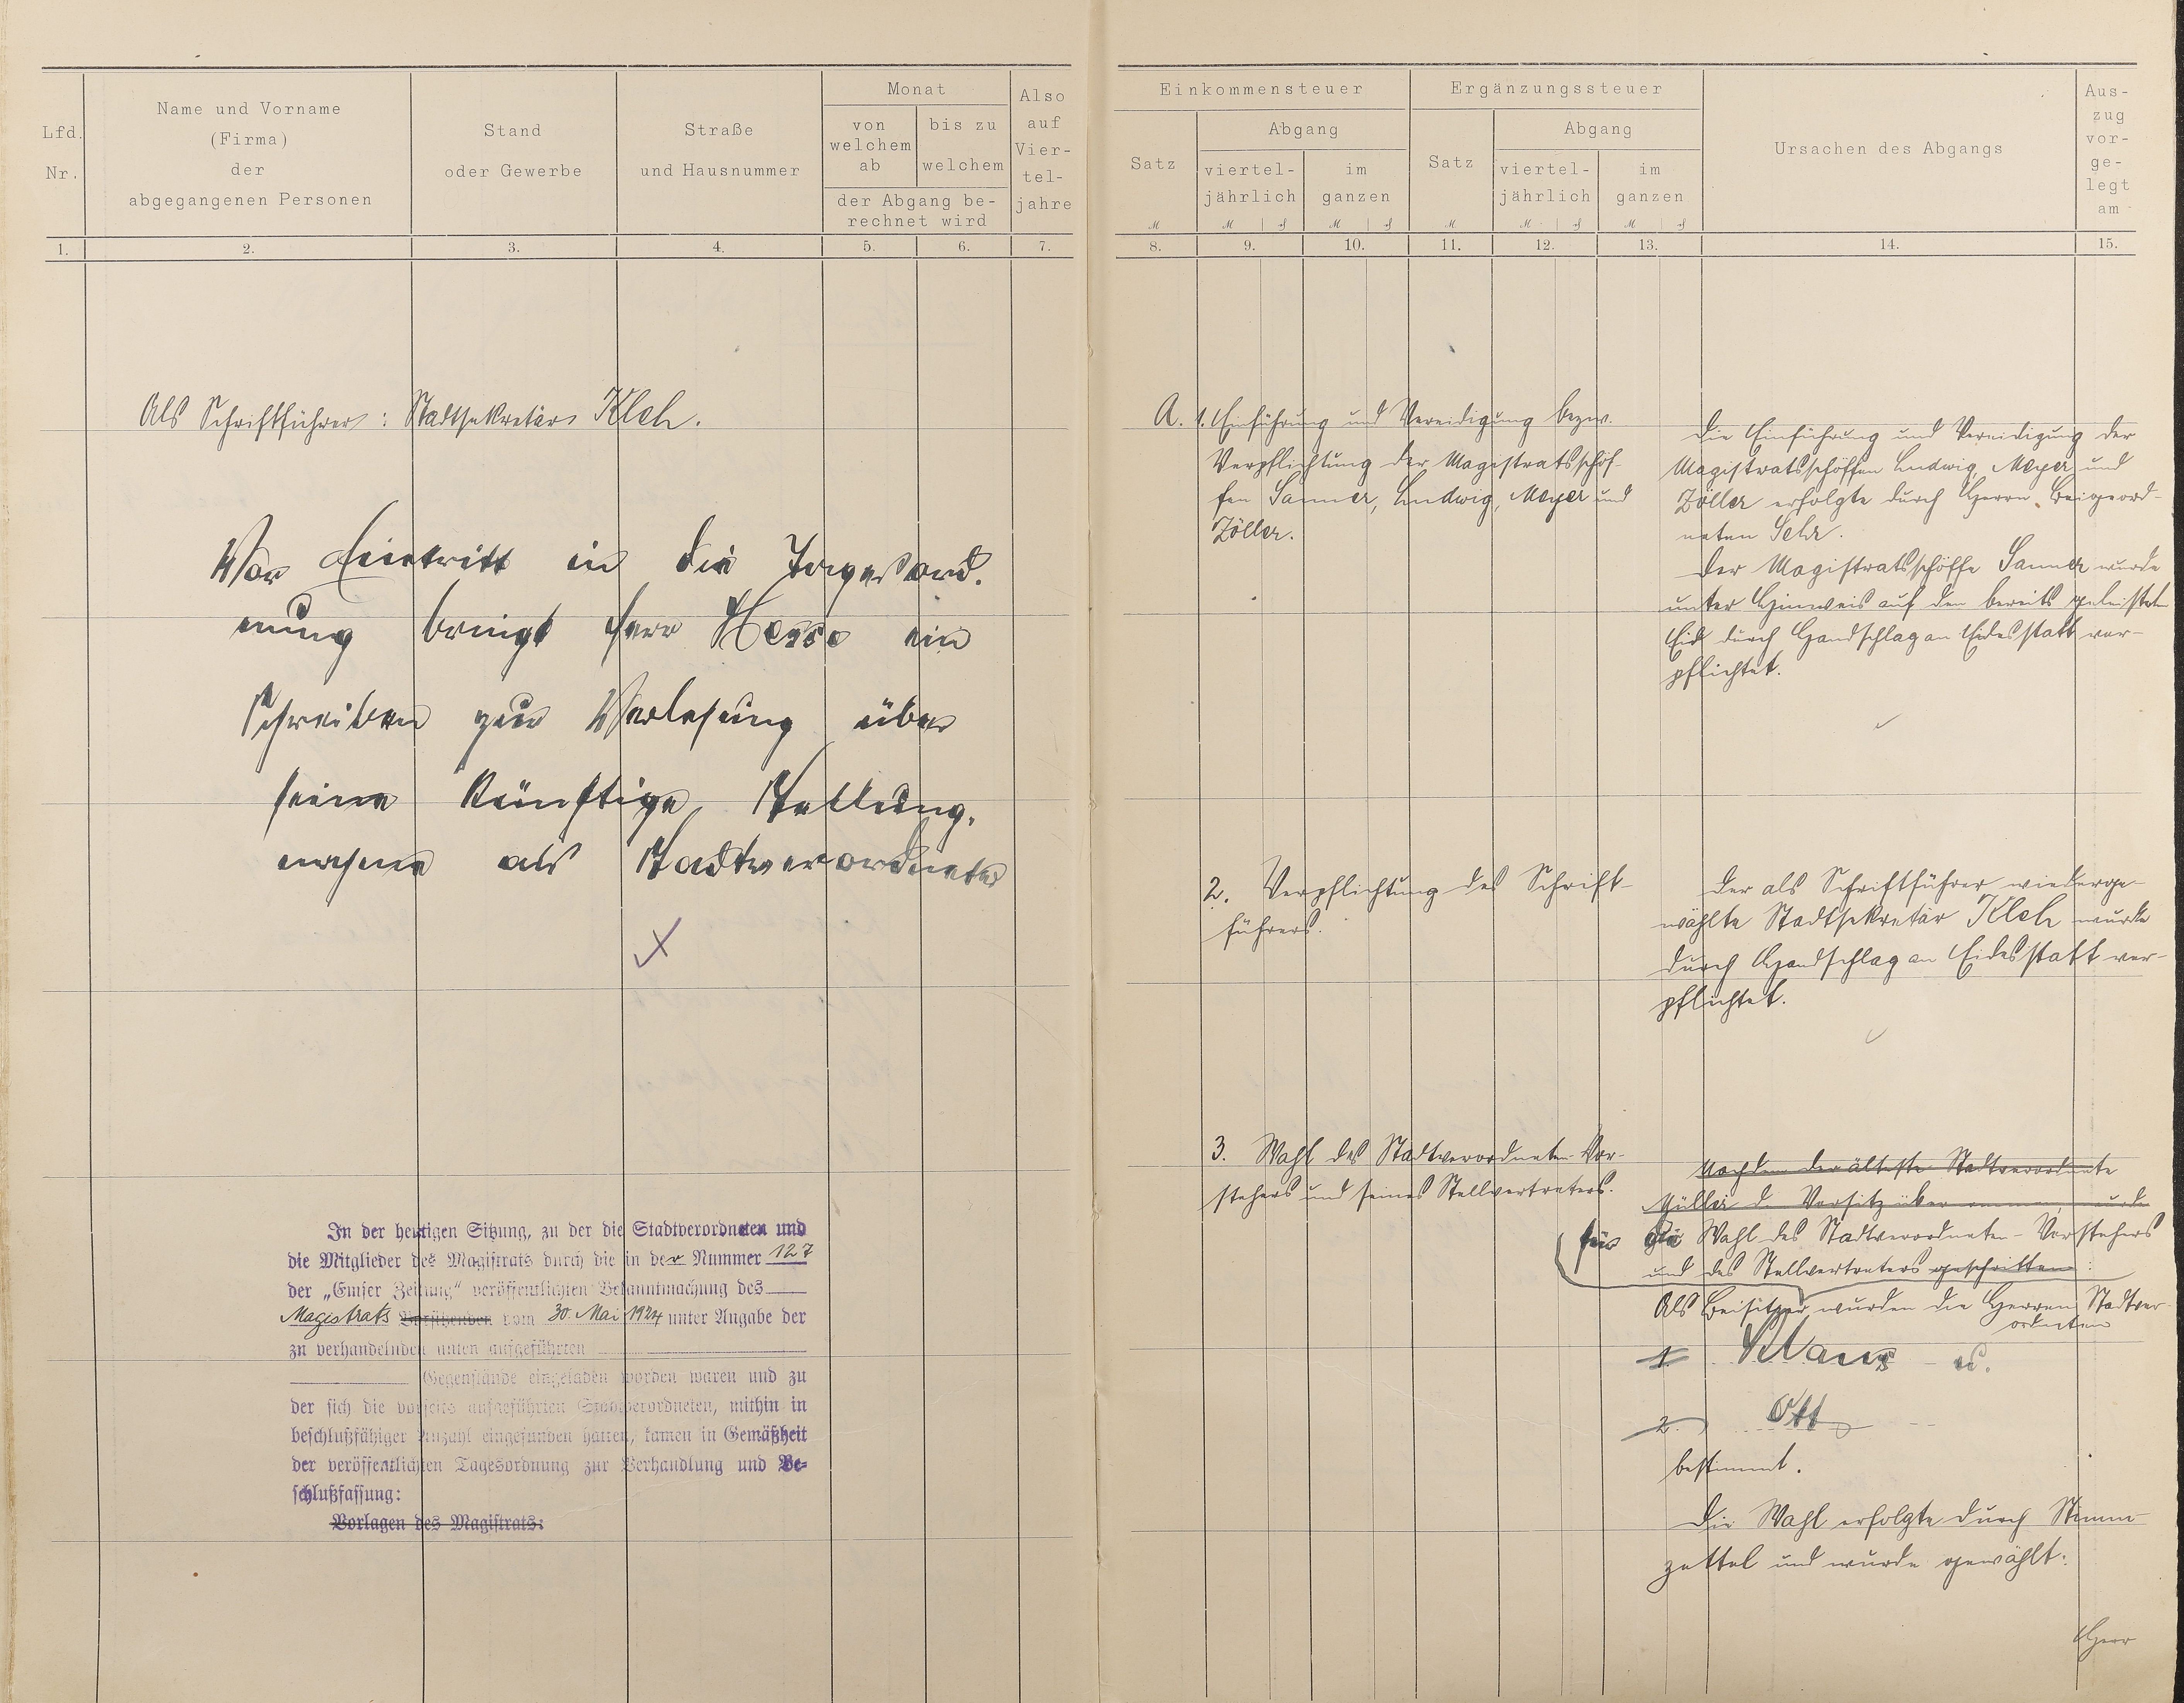 Lfd. Nr.
Name und Vorname
(Firma)
der
abgegangenen Personen
Stand
oder Gewerbe
Straße
und Hausnummer
Monat
von welchem ab
bis zu welchem
der Abgang be-
rechnet wird
Also auf Vier-
tel-
jahre
1. 2. 3. 4. 5. 6. 7.
Als Schriftführer: Stadtsekretär Kleh.
Vor Eintritt in die Tagesord-
nung bringt Herr Hesse ein
Schreiben zur Verlesung über
seine künftige Stellung-
nahme als Stadtverordneter
In der heutigen Sitzung, zu der die Stadtverordneten und
die Mitglieder des Magistrats durch die in der Nummer 127
der „Emser Zeitung“ veröffentlichten Bekanntmachung des
Magistrats Vorsitzenden vom 30. Mai 1924 unter Angabe der
zu verhandelnden unten aufgeführten
Gegenstände eingeladen worden waren und zu
der sich die vorseits aufgeführten Stadtverordneten, mithin in
beschlußfähiger Anzahl eingefunden hatten, kamen in Gemäßheit
der veröffentlichten Tagesordnung zur Verhandlung und Be-
schlußfassung:
Vorlagen des Magistrats:
Einkommensteuer
Satz
Abgang
viertel-
jährlich
im
ganzen
Ergänzungssteuer
Satz
Abgang
viertel-
jährlich
im
ganzen
Ursachen des Abgangs
Aus-
zug
vor-
ge-
legt
am
8. 9. 10. 11. 12. 13. 14. 15.
A. 1. Einführung und Vereidigung bezw.
Verpflichtung der Magistratsschöf-
fen Sanner, Ludwig, Meyer und
Zöller.
Die Einführung und Vereidigung der
Magistratsschöffen Ludwig, Meyer und
Zöller erfolgte durch Herrn Beigeord-
neten
Der Magistratsschöffe Sanner wurde
unter Hinweis auf den bereits geleisteten
Eid durch Handschlag an Eidesstatt ver-
pflichtet.
2. Verpflichtung des Schrift-
führers.
Der als Schriftführer wiederge-
wählte Stadtsekretär Kleh wurde
durch Handschlag an Eidesstatt ver-
pflichtet.
3. Wahl des Stadtverordneten-Vor-
stehers und seines Stellvertreters.
Nachdem der älteste Stadtverordnete
Müller den Vorsitz übernommen, wurde
für die Wahl des Stadtverordneten-Vorstehers
und des Stellvertreters geschritten:
Als Beisitzer wurden die Herren Stadtver-
ordneten
1. Klaus u.
2. Ott
bestimmt.
Die Wahl erfolgte durch Stimm-
zettel und wurde gewählt:
Herr